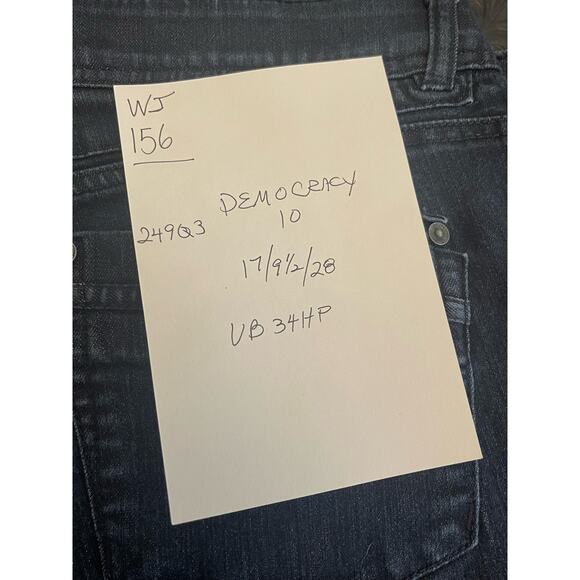 WJ
156
DEMOCRACY
249Q3
10
17/9½/28
UB 34HP